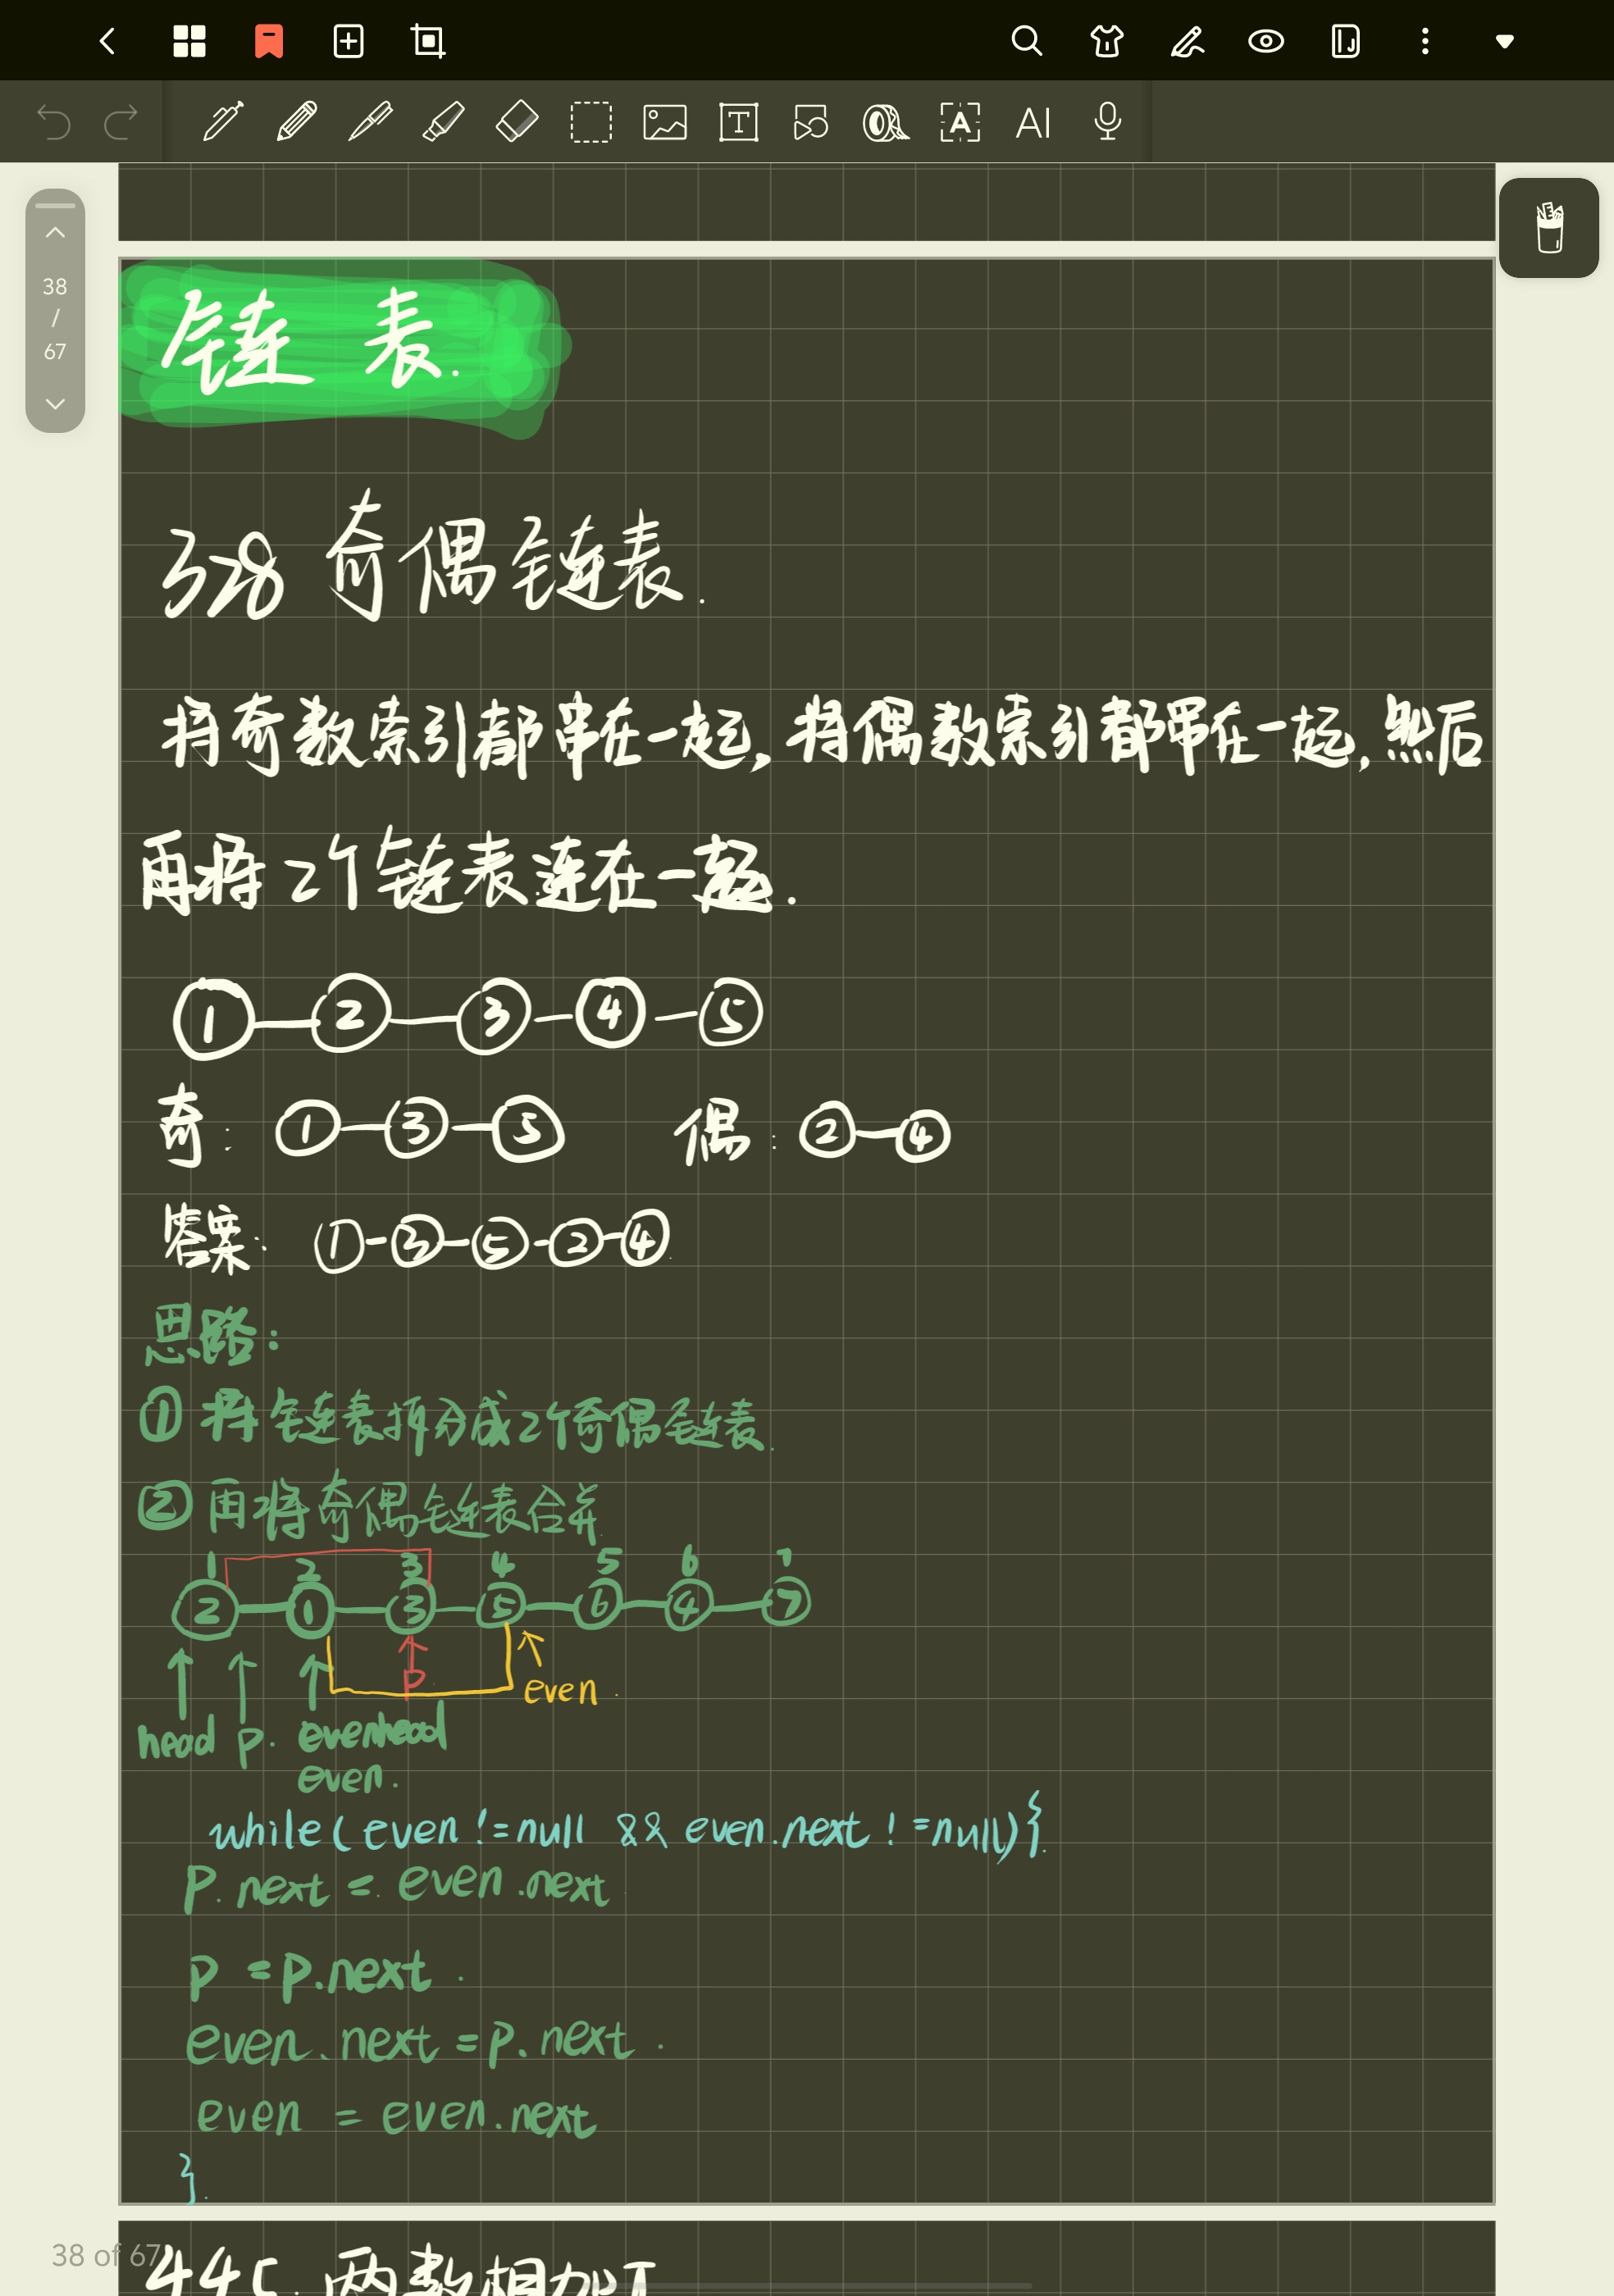 38
/
67
T
A
AI
链表.
328 奇偶链表.
将奇数索引都串在一起,将偶数索引都串在一起,然后
再将2个链表连在一起.
1 2 3 4 5
奇: 1 3 5 偶: 2 4
答案: 1 3 5 2 4
思路:
① 将链表拆分成2个奇偶链表.
② 再将奇偶链表合并.
1 2 3 4 5 6 7
2 1 3 5 6 4 7
p
even.
head p. evenhead
even.
while(even!=null && even.next!=null){
p.next = even.next
p = p.next.
even.next = p.next.
even = even.next
}.
38 of 67
445.两数相加II